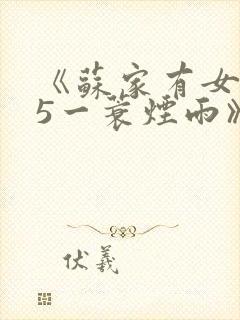 《蘇家有女
5一蓑煙雨》
伏羲
5